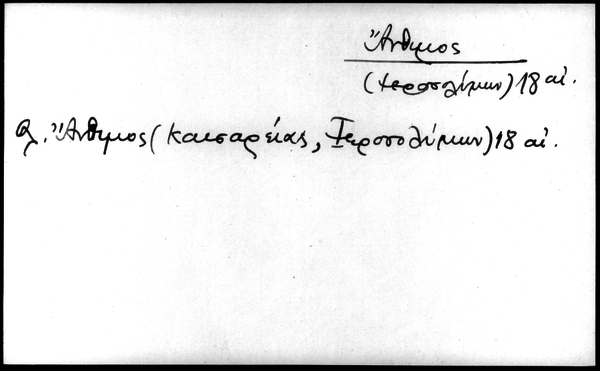 Ἄνθιμος
(Ἱεροσολύμων) 18 αἰ.
βλ. Ἄνθιμος (Καισαρείας, Ἱεροσολύμων) 18 αἰ.